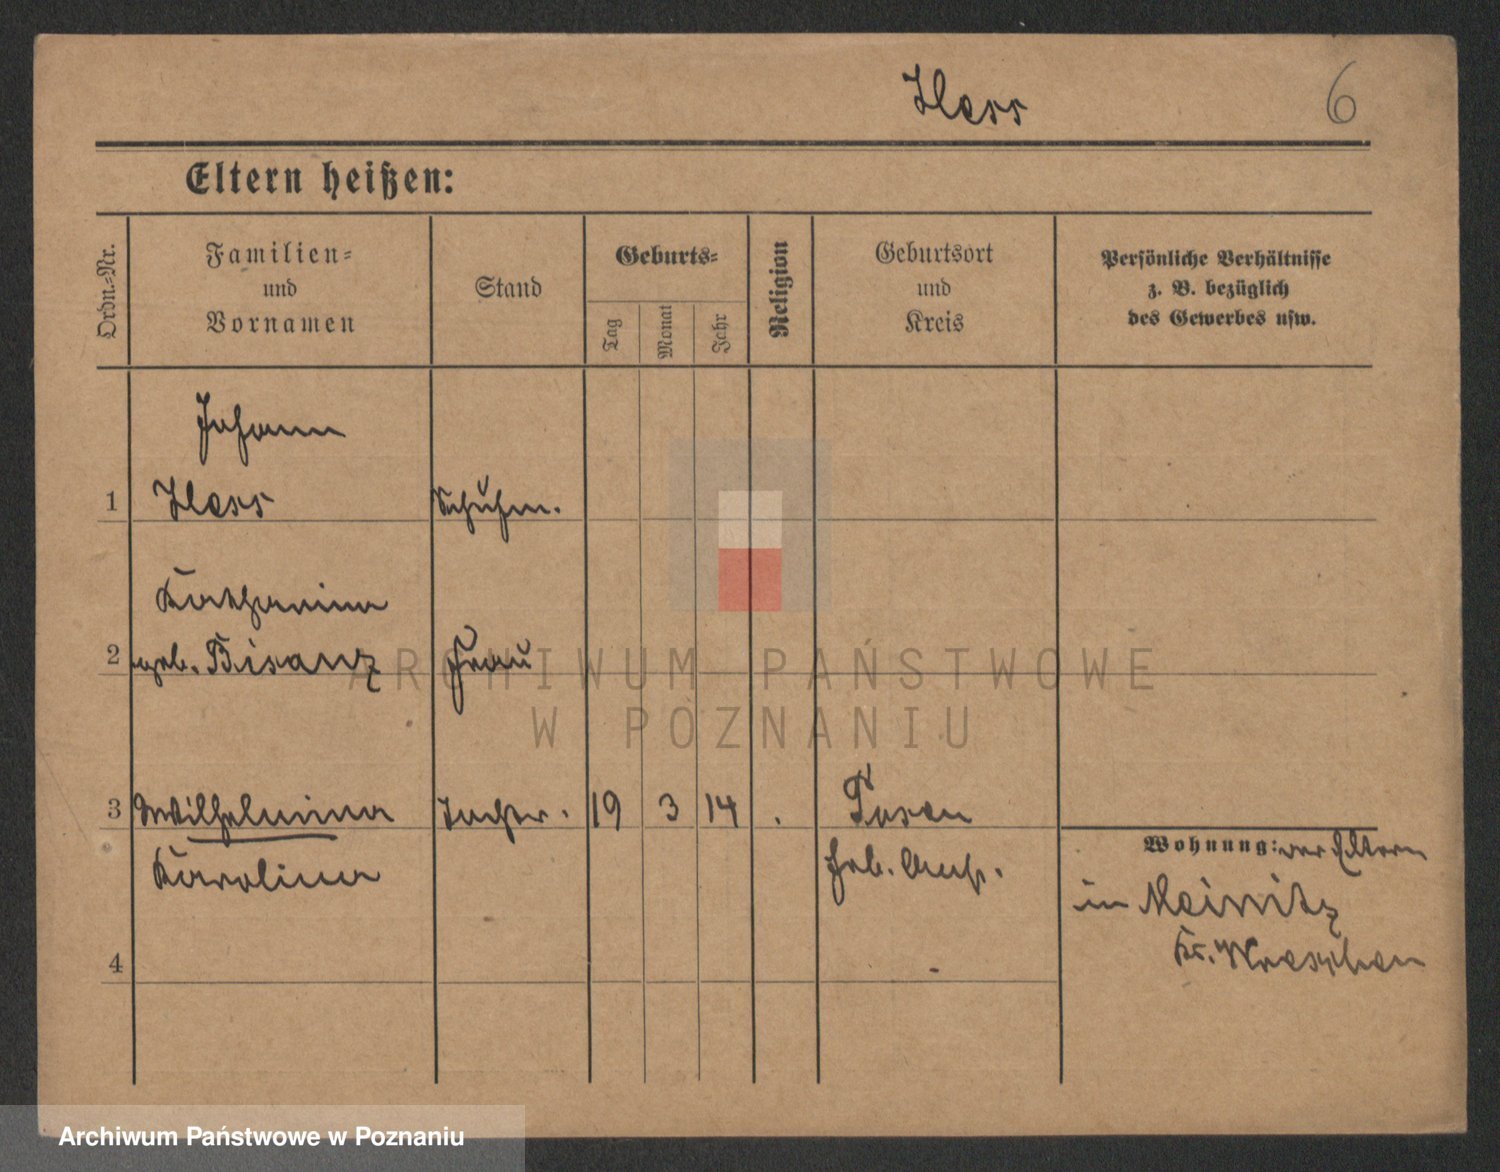 Hess
6
Eltern heißen:
Ordn.-Nr.
Familien-
und
Vornamen
Stand
Geburts-
Tag
Monat
Jahr
Religion
Geburtsort
und
Kreis
Persönliche Verhältnisse
z. B. bezüglich
des Gewerbes usw.
Johann
1 Hess Schuhm.
Katharina
2 geb. Bisanz Frau
3 Wilhelmina Tochter. 19 3 14 . Posen
Karolina Geb. Anst.
Wohnung: der Eltern
in
Kr. Wreschen
4
ARCHIWUM PAŃSTWOWE
W POZNANIU
Archiwum Państwowe w Poznaniu